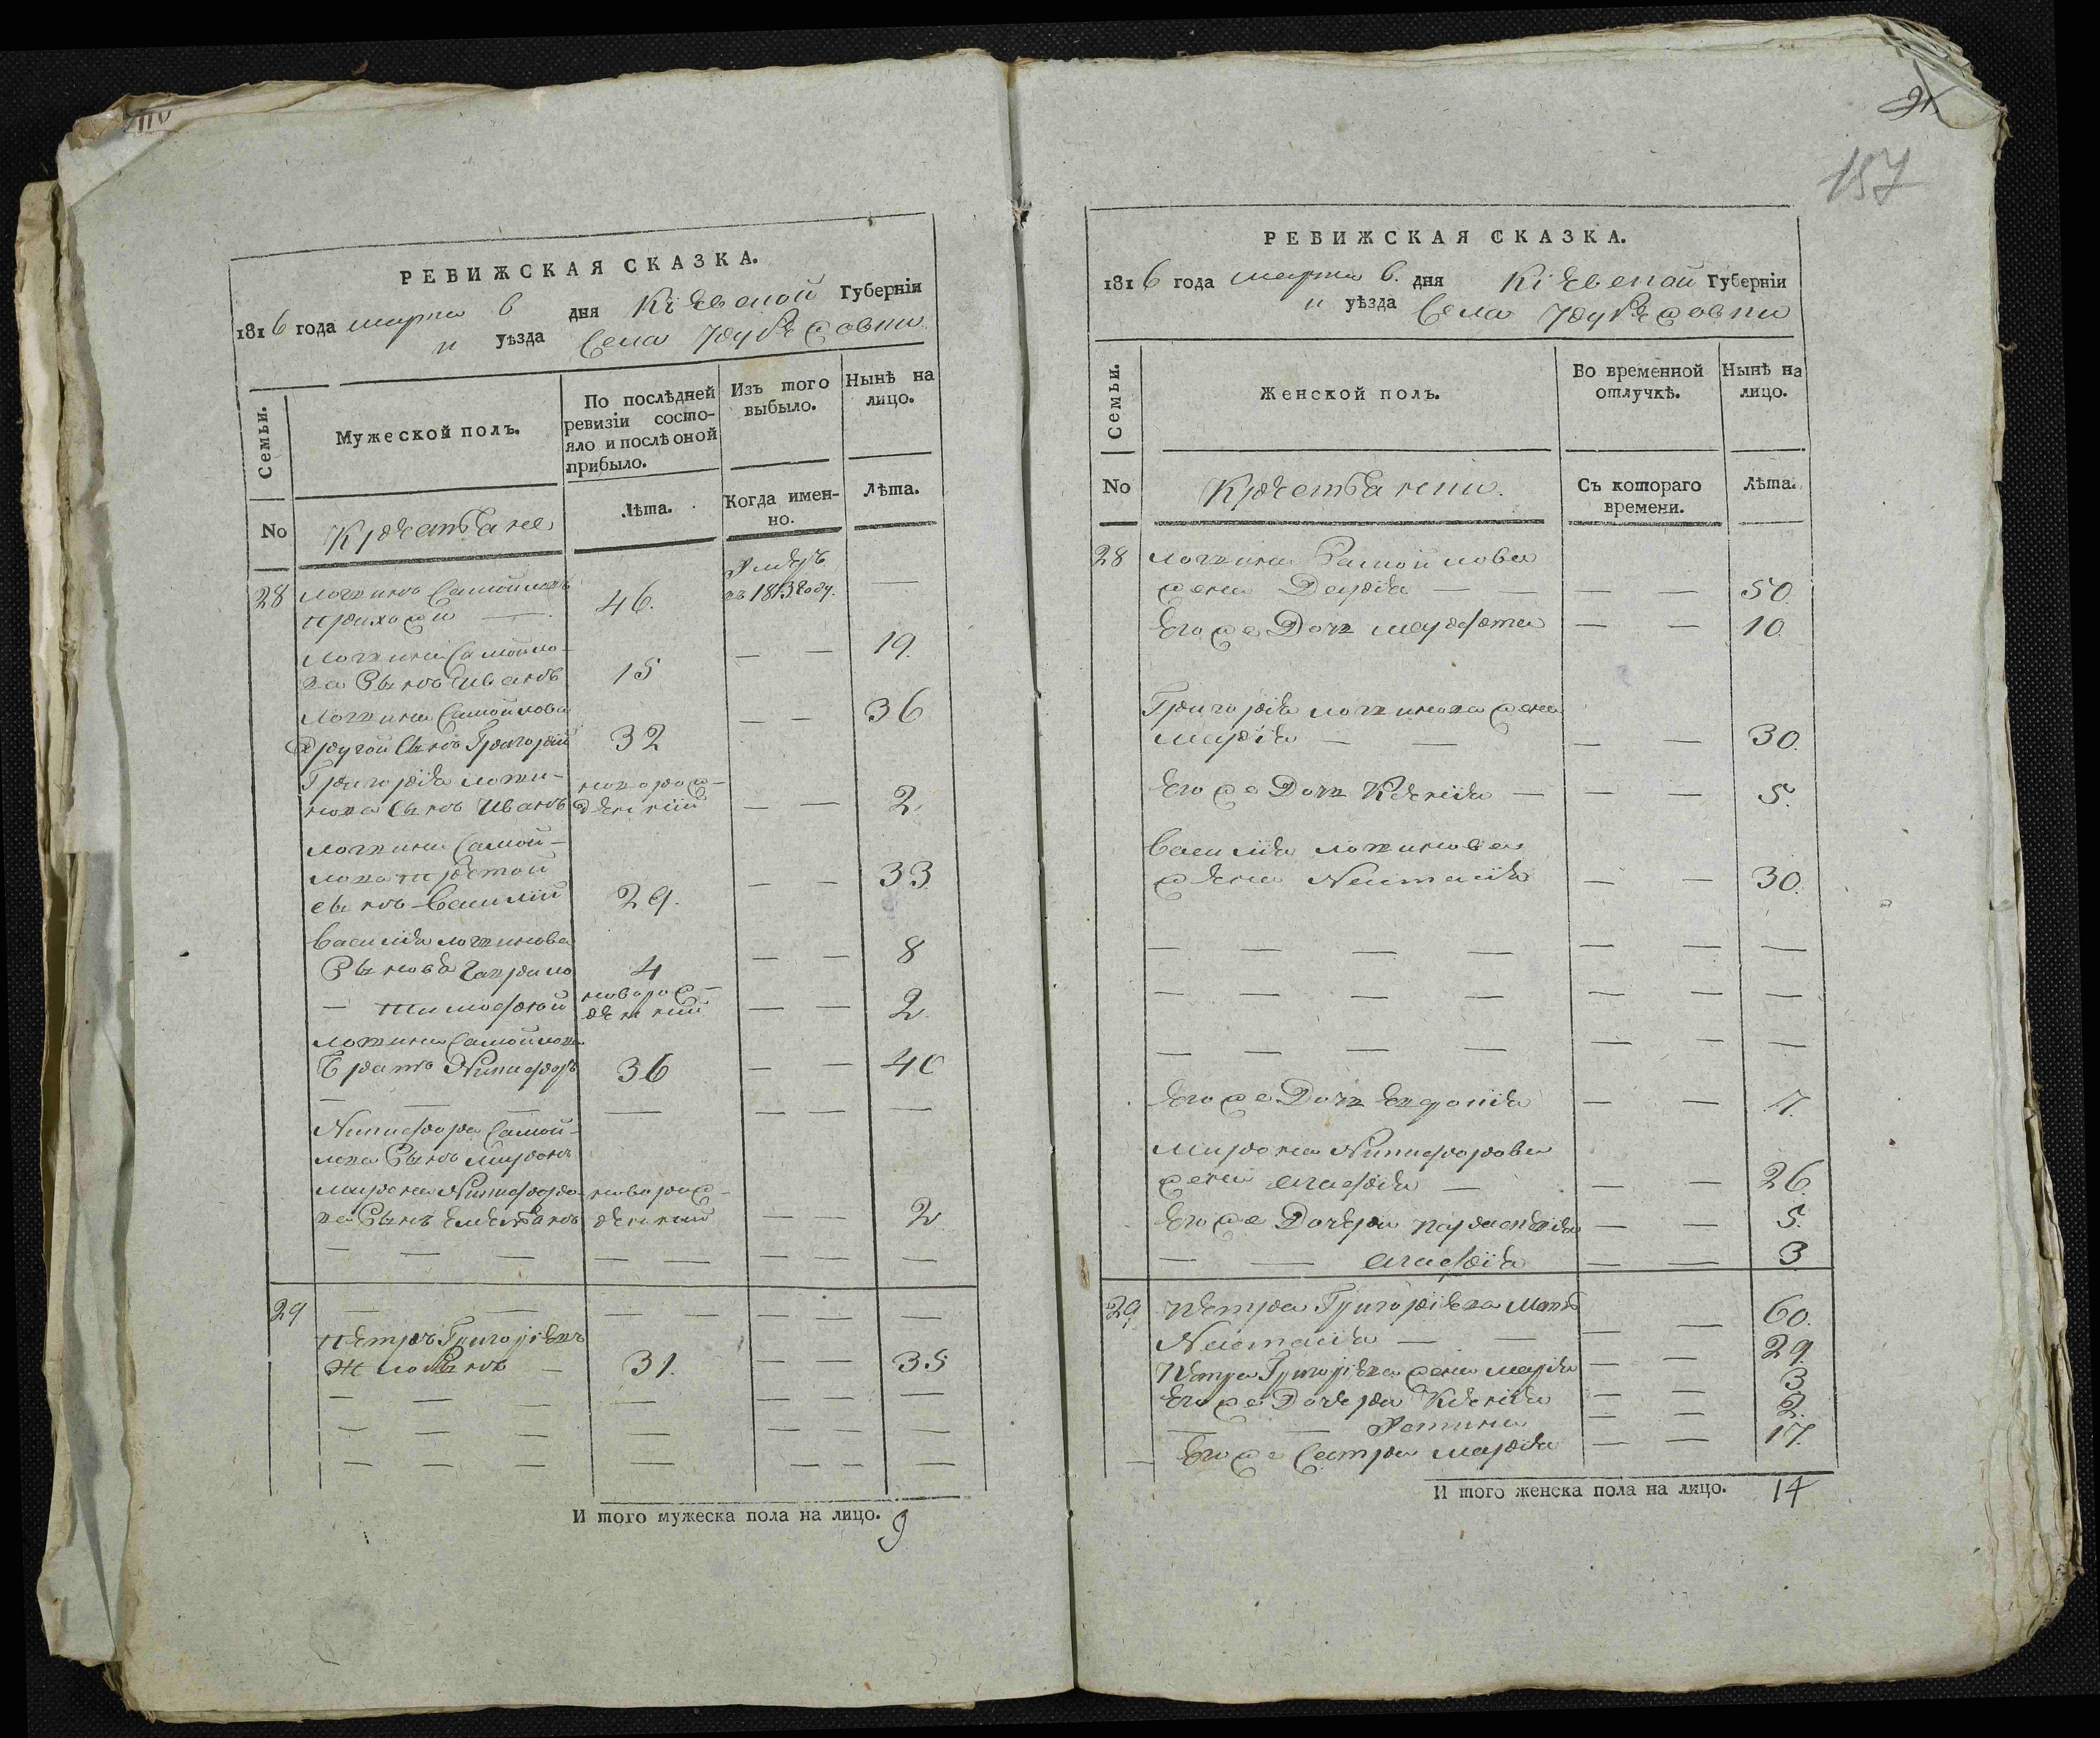 157
РЕВИЖСКАЯ СКАЗКА.
1816 года марта 6 дня Кіевской Губерніи
и уѣзда Села
Семьи.
Мужеской полъ.
По послѣдней ревизіи состо-
яло и послѣ оной прибыло.
Изъ того выбыло.
Нынѣ на лицо.
No
Крестьяне
Лѣта.
Когда имен-
но.
Лѣта.
28 Логвинъ Самойловъ
46.
Умеръ
въ 1813 году.
—
Логвина Самойло-
ва Сынъ Иванъ 15 — — 19.
Логвина Самойлова
другой Сынъ Григорій 32 — — 36
Григорія Логви-
нова Сынъ Иванъ
новорож-
денній — — 2
Логвина Самой-
лова третой
сынъ Василій 29. — — 33
Василія Логвинова
Сыновья Гаврило 4 — — 8
— Тимофей
новорож-
денній — — 2
Логвина Самойлова
Братъ Никифоръ 36 — — 40
Никифора Самой-
лова Сынъ Миронъ
Мирона Никифоро-
ва Сынъ Емельянъ
новорож-
денній — — 2
29
Петръ Григоріевъ
31. — — 35
И того мужеска пола на лицо. 9
РЕВИЖСКАЯ СКАЗКА.
1816 года марта 6. дня Кіевской Губерніи
и уѣзда Села
Семьи.
Женской полъ.
Во временной отлучкѣ.
Нынѣ на лицо.
No
Крестьянки.
Съ котораго времени.
Лѣта.
28 Логвина Самойлова
жена Дарія — — — — 50
Его же Дочь — — 10
Григорія Логвинова жена
Марія — — — — 30.
Его же Дочь Ксенія — — — 5.
Василія Логвинова
жена Настасія — — 30.
Его же Дочь Евдокія — — 17.
Мирона Никифорова
жена Агафія — — — 26.
Его же Дочери Параскевія — — 5.
— — Агафія — — 3
29 Петра Григоріева Мать
Настасія — — — — 60.
Петра Григоріева жена Марія — — 29.
Его же Дочери Ксенія — — 3
— — Устина — — 2.
— Его же Сестра Марія — — 17.
И того женска пола на лицо. 14